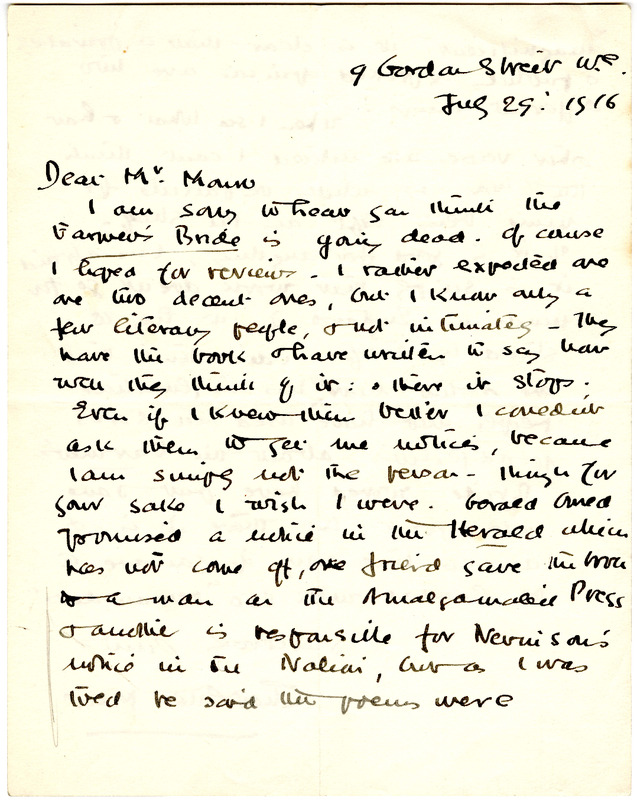 9 Gordon Street W.C.
July 29: 1916
Dear Mr. Monro
I am sorry to hear you think the
Farmer's Bride is going dead. Of course
I hoped for reviews. I rather expected one
or two decent ones, but I know only a
few literary people, & not intimately – They
have the book & have written to say how
well they think of it: & there it stops.
Even if I knew them better I couldn't
ask them to get me notices, because
I am simply not the person – though for
your sake I wish I were. Gerald Gould
promised a notice in the Herald which
has not come off, one friend gave the book
to a man on the Amalgamated Press
& another is responsible for Nevinson's
notice in the Nation, but as I was
told he said the poems were